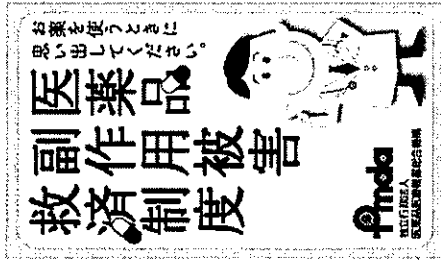 お薬を使うときに
思い出してください。
医薬品
副作用被害
救済制度
Pmda
独立行政法人
医薬品医療機器総合機構